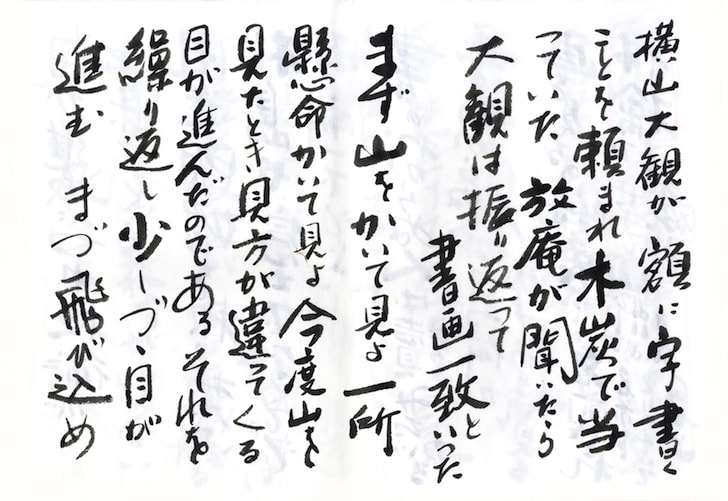 横山大観が額に字書く
ことを頼まれ木炭で当
っていた 放庵が聞いたら
大観は振り返って
書画一致と
いった
まず山をかいて見よ 一所
懸命かいて見よ 今度山を
見たとき見方が違ってくる
目が進んだのである それを
繰り返し少しづゝ目が
進む まづ飛び込め